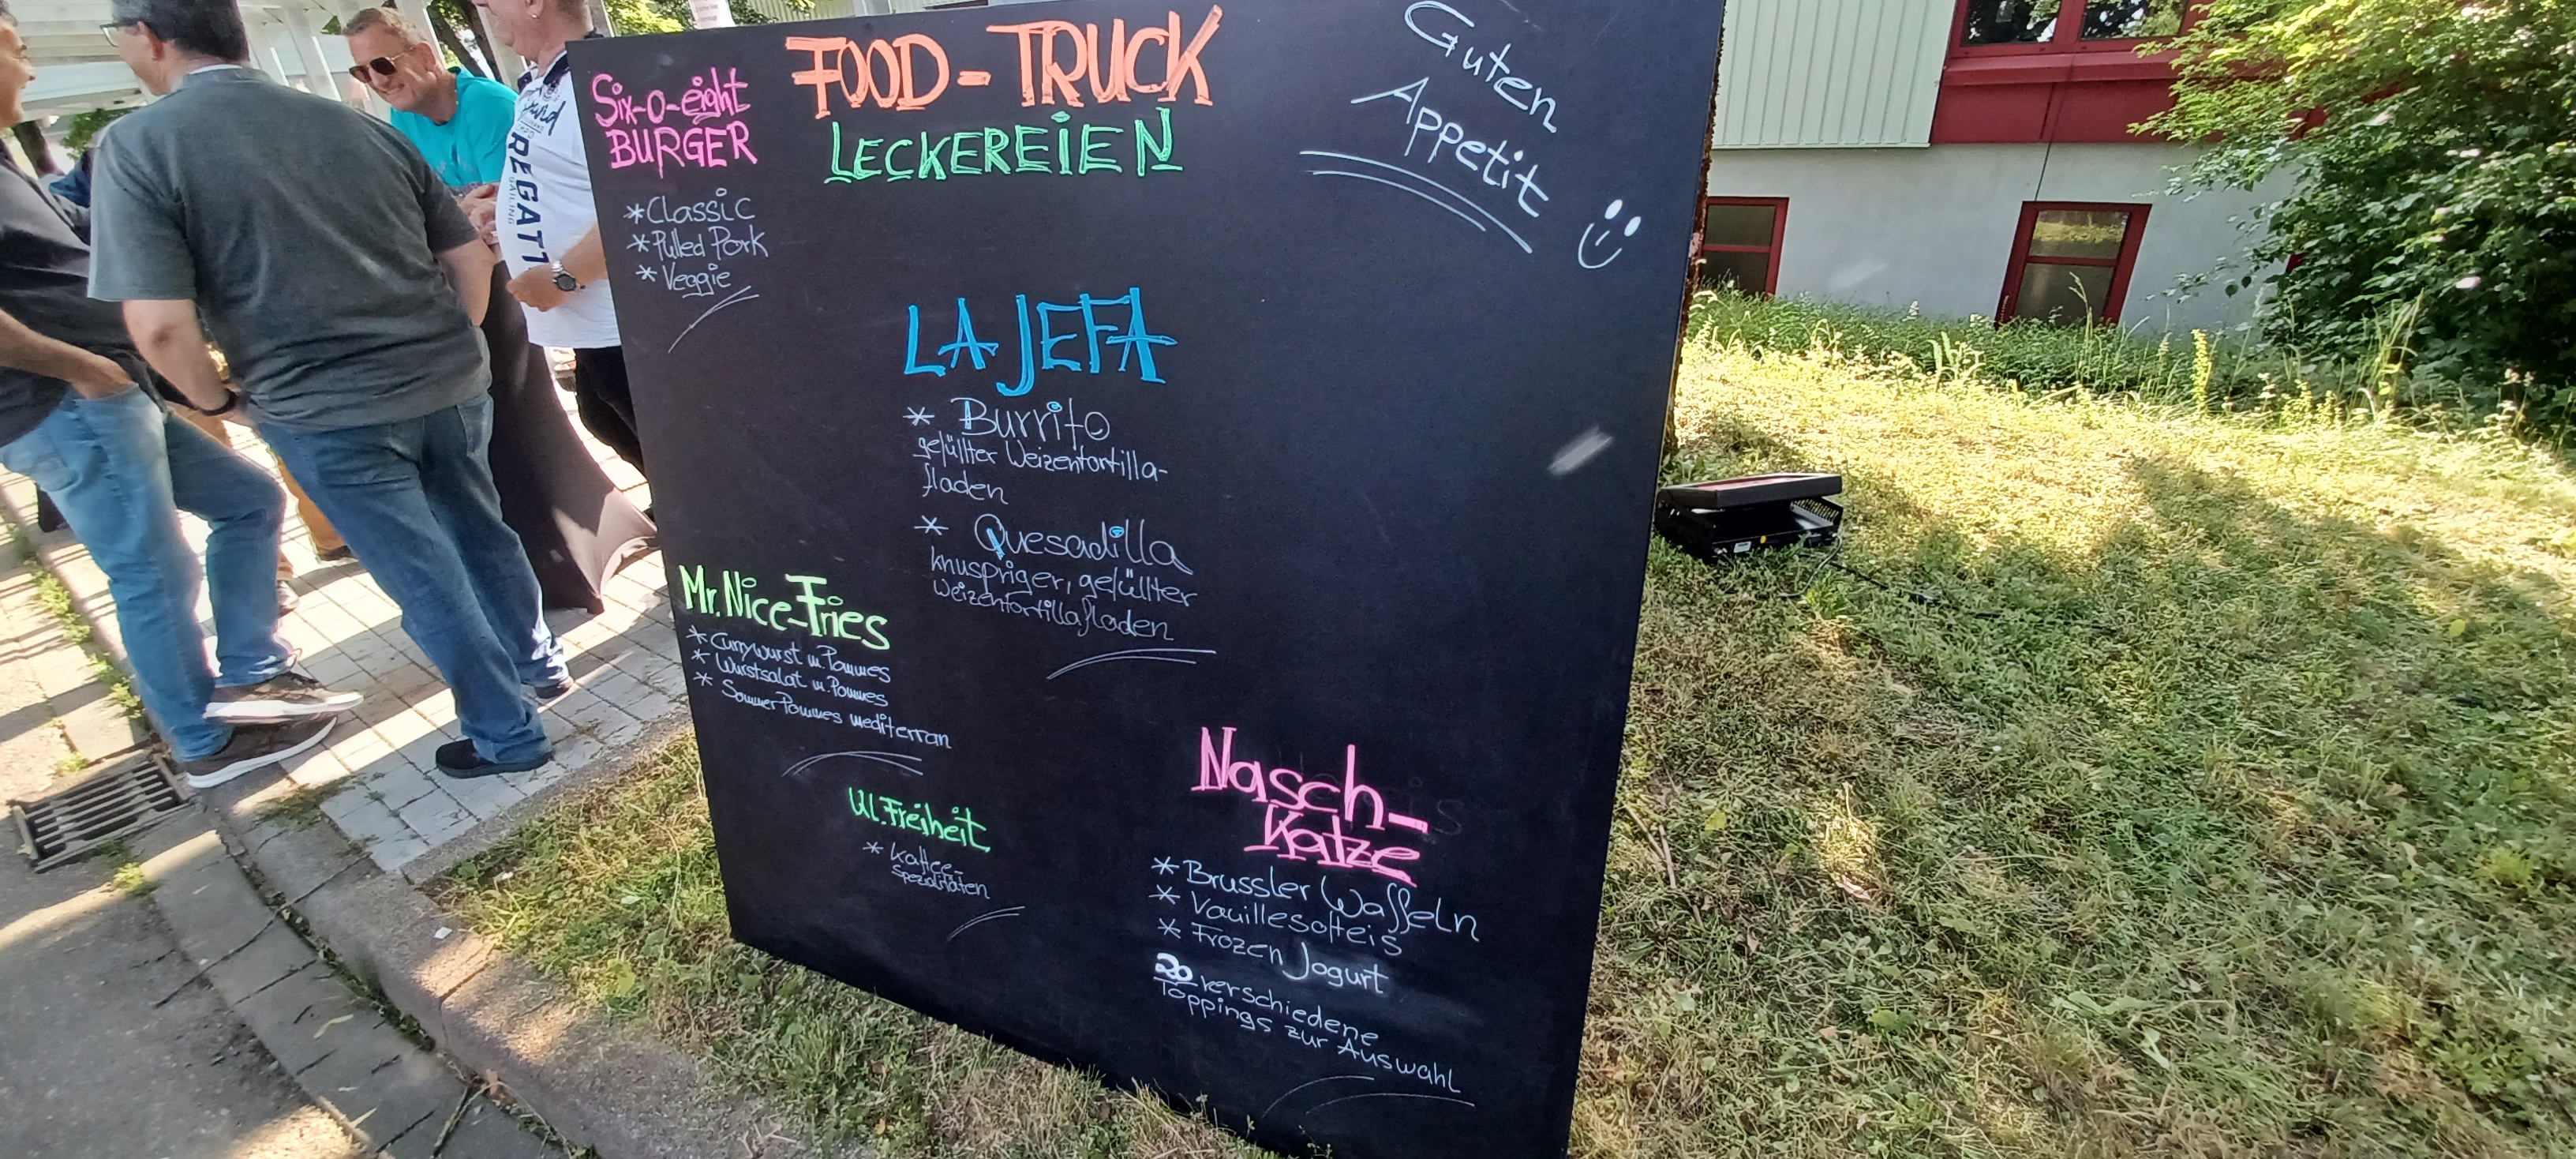 FOOD-TRUCK
LECKEREIEN
Guten
Appetit
Six-o-eight
BURGER
*Classic
*Pulled Pork
*Veggie
LA JEFA
* Burrito
gefüllter Weizentortilla-
fladen
* Quesadilla
knuspriger, gefüllter
Weizentortillafladen
Mr. Nice-Fries
* Currywurst m. Pommes
* Wurstsalat m. Pommes
* Sommer Pommes mediterran
Ul. Freiheit
* Kaffee-
Spezialitäten
Nasch-
Katze
* Brussler Waffeln
* Vanillesofteis
* Frozen Jogurt
20 verschiedene
Toppings zur Auswahl
REGATT
SAILING